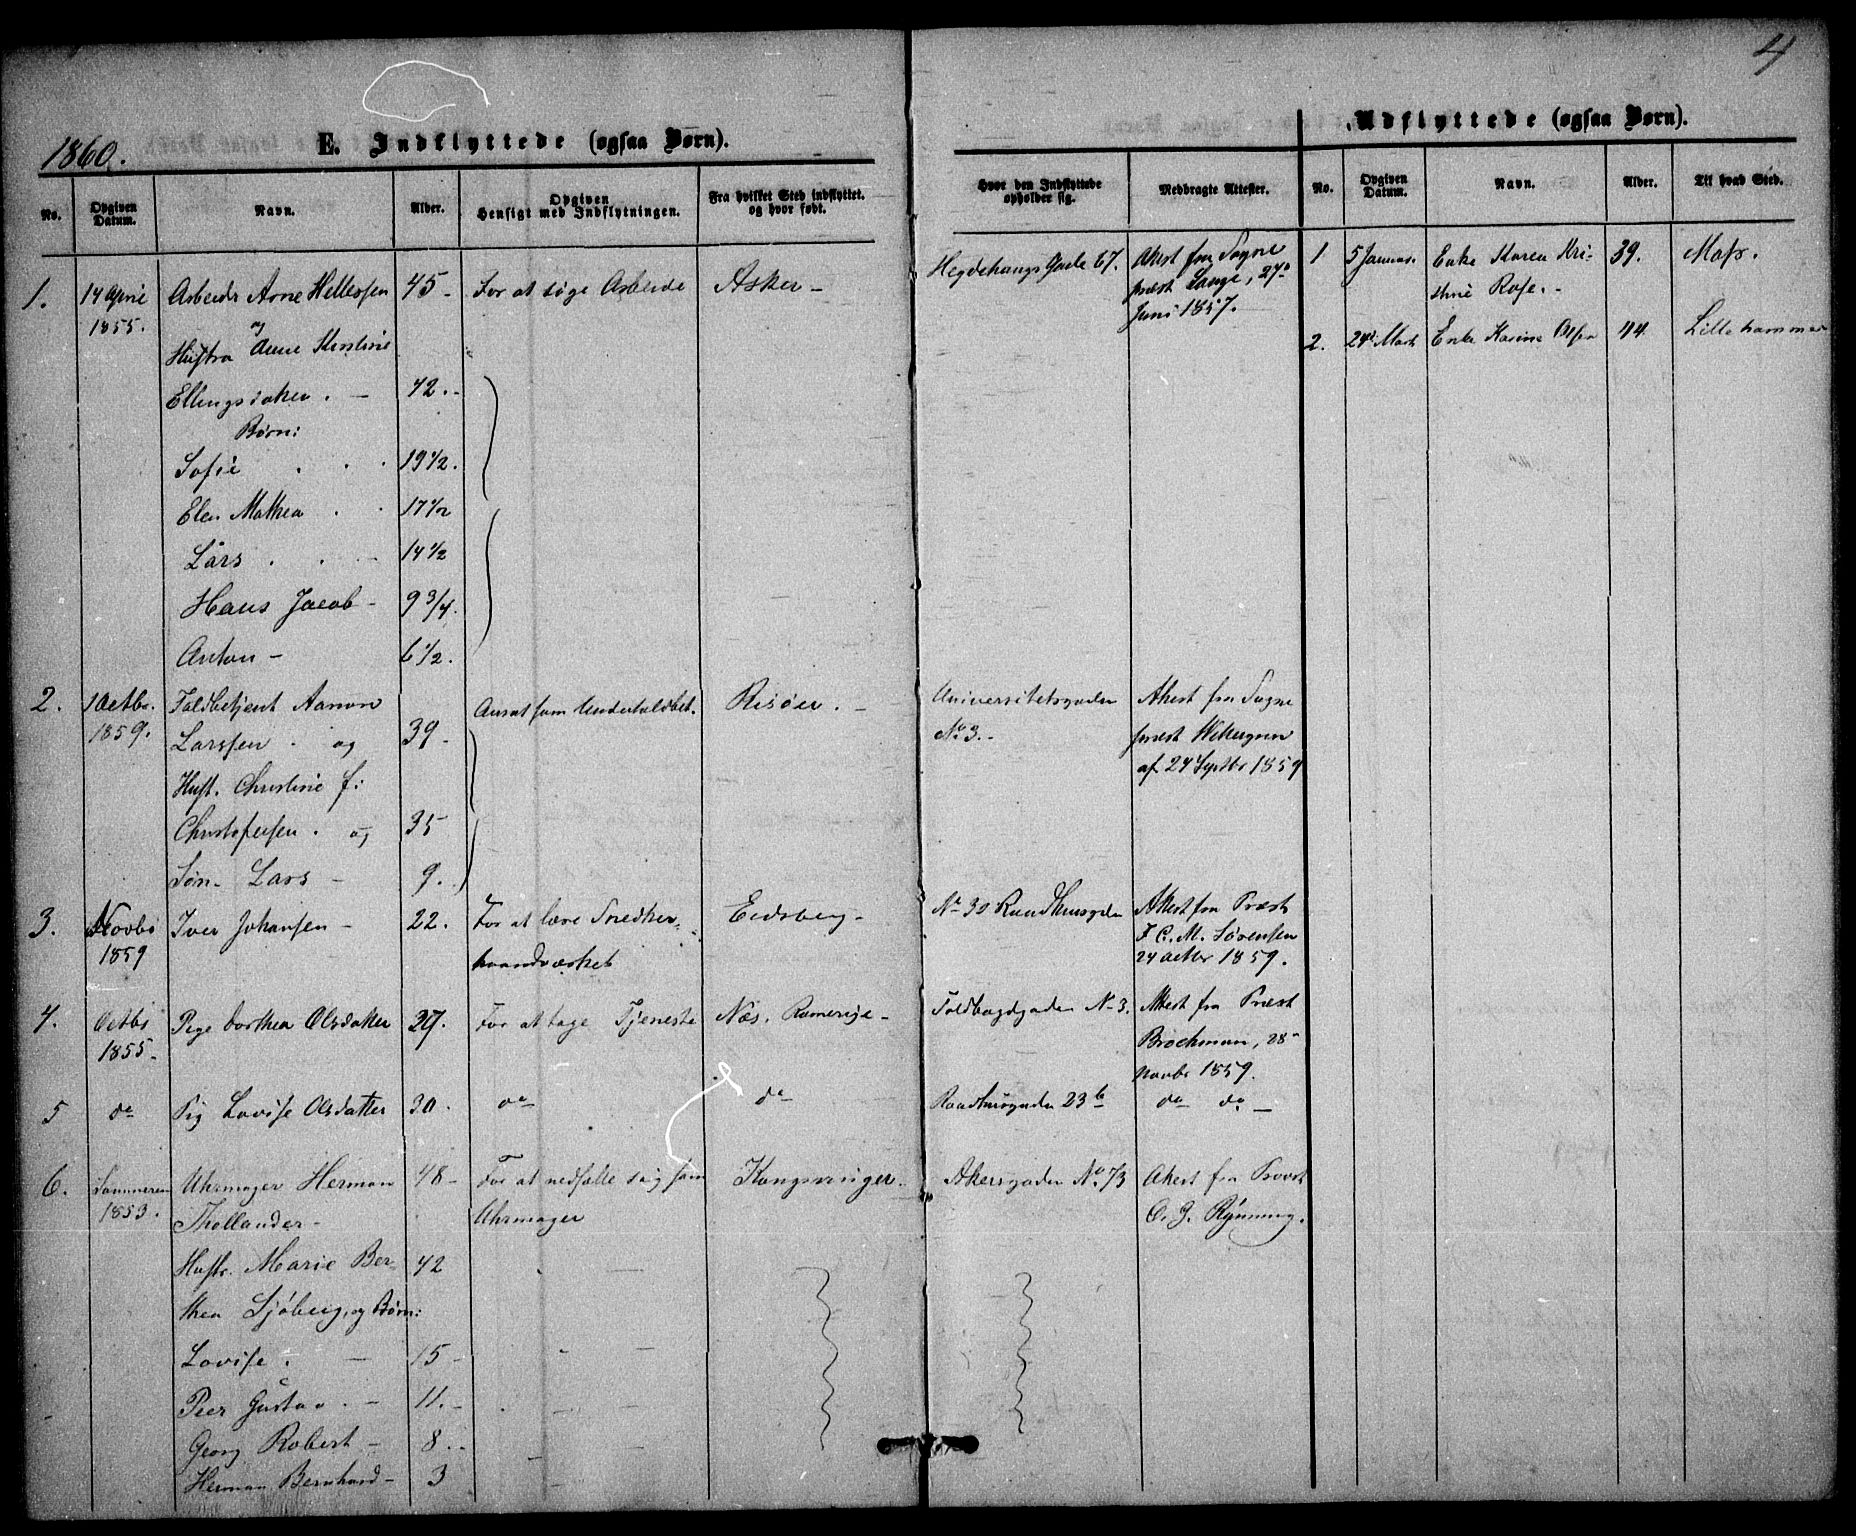 4
1860.
E. Indflyttede (ogsaa Børn).
No.
Opgiven Datum.
Navn.
Alder.
Opgiven Hensigt med Indflytningen.
Fra hvilket Sted indflyttet. og hvor født.
Hvor den Indflyttede opholder sig.
Medbragte Attester.
Udflyttede (ogsaa Børn).
No.
Opgiven Datum.
Navn.
Alder.
Til hvad Sted.
1. 14 April Arbeider Arne Hellessen 45 - For at søge Arbeide Asker -
1855. og
Hustru Anne Kirstine
Ellingsdatter . - 42. -
Børn:
Sofie . . . 19 1/2.
Elen Mathea . . 17 1/2
Lars . . . 14 1/2
Hans Jacob - 9 3/4.
Anton - 6 1/2.
2. 1 Octbr. Toldbetjent Aanon Ansat som Undertoldbet. Risøer. -
1859. Larssen . og 39 -
Hust. Christine f:
Christofersen . og 35
Søn - Lars - 9.
3. Novbr Iver Johansen - 22. For at lære Snedker- Eidsberg -
1859 haandværket
4. Octbr Pige Dorthea Olsdatter 27. For at tage Tjeneste Næs. Romerige -
1855 -
5 do Pig Lovise Olsdatter 30. do do
6. Sommeren Uhrmager Herman 48 - For at nedsætte sig som Kongsvinger.
1853. Thollander - Uhrmager
Hustr. Marie Ber- 42
thea Sjöberg, og Børn:
Lovise . - 15 -
Peer Gustav . - 11. -
Georg Robert - 8. -
Herman Bernhard - 3
Hegdehaugs Gade 67. Attest fra Sogne
præst Lange, 27de
Juni 1857.
Universitetsgaden Attest fra Sogne
No 3. - præst
af 24 Septbr 1859
No 30 Raadhusgden Attest fra Præst
F. C. M. Sørensen
24 Octbr 1859.
Toldbodgaden No 3. Attest fra Præst
Brochman, 28 -
Novbr 1859.
Raadhusgaden 23 b do do -
Akersgaden No 73 Attest fra Provst
O. G. Rynning.
1 5 Januar Enke Karen Kri- 39. Moss.
stine Rose. -
2. 24 Marts Enke Karine 44. Lillehammer